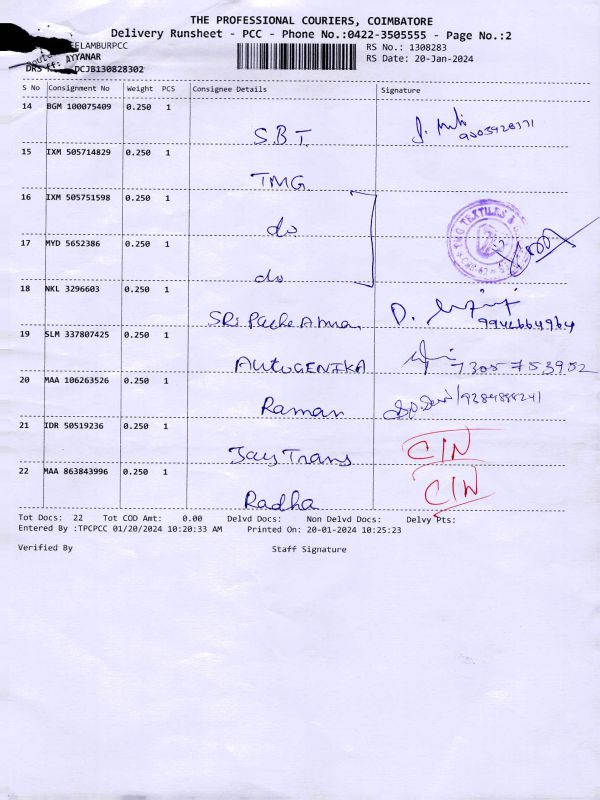 THE PROFESSIONAL COURIERS, COIMBATORE
Delivery Runsheet - PCC - Phone No.:0422-3505555 - Page No.:2
EELAMBURPCC
RS No.: 1308283
AYYANAR
RS Date: 20-Jan-2024
DCJB130828302
S No Consignment No Weight PCS Consignee Details Signature
14 BGM 100075409 0.250 1
S.B.T.
15 IXM 505714829 0.250 1
TMG
16 IXM 505751598 0.250 1
do
17 MYD 5652386 0.250 1
do
TMG TEXTILES &
18 NKL 3296603 0.250 1
SRi D.
9944664964
19 SLM 337807425 0.250 1
AUTOGENIKA 7305753952
20 MAA 106263526 0.250 1
Raman
21 IDR 50519236 0.250 1
Jay Trans C/N
22 MAA 863843996 0.250 1
Radha C/N
Tot Docs: 22 Tot COD Amt: 0.00 Delvd Docs: Non Delvd Docs: Delvy Pts:
Entered By :TPCPCC 01/20/2024 10:20:33 AM Printed On: 20-01-2024 10:25:23
Verified By Staff Signature